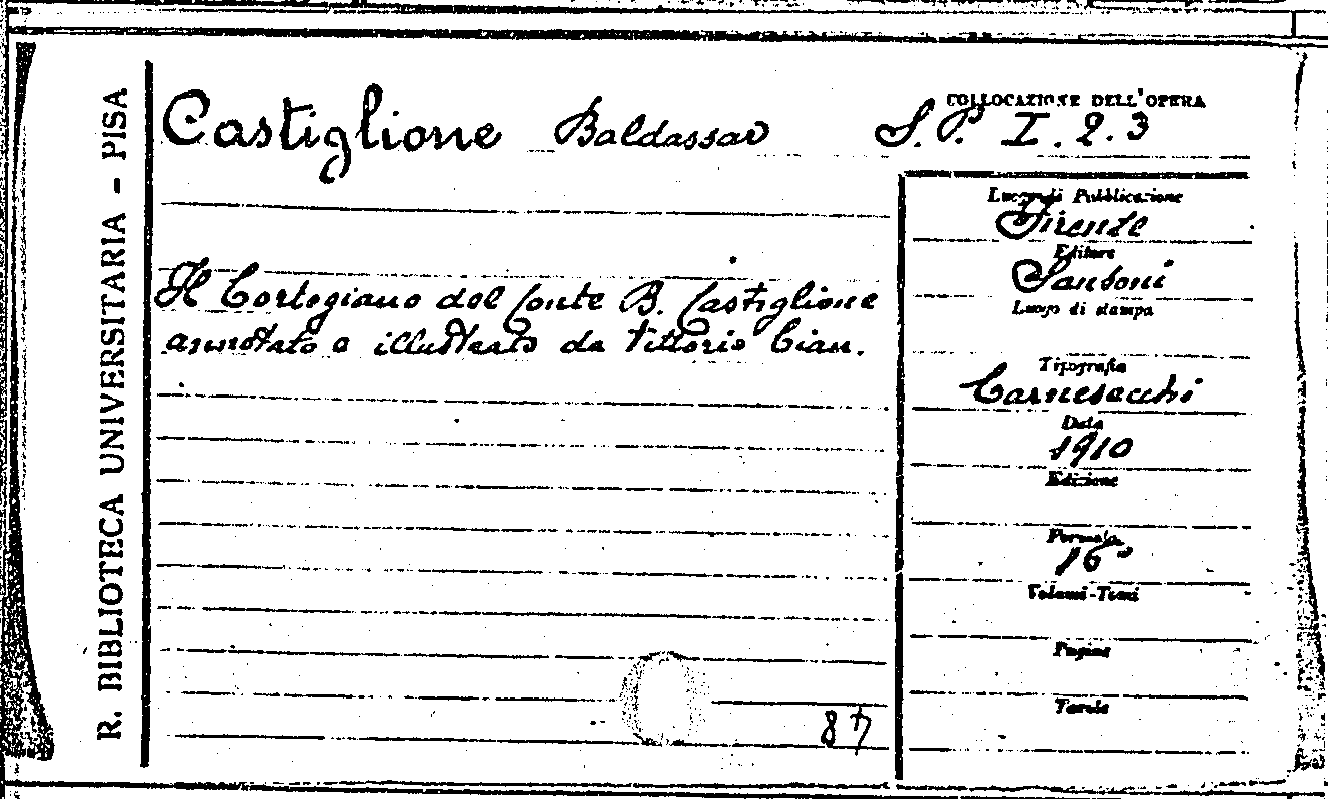 R. BIBLIOTECA UNIVERSITARIA - PISA
Castiglione Baldassar
COLLOCAZIONE DELL'OPERA
S.P. I.2.3
Il Cortegiano del Conte B. Castiglione
annotato e illustrato da Vittorio Cian.
87
Luogo di Pubblicazione
Firenze
Editore
Sansoni
Luogo di stampa
Tipografia
Carnesecchi
Data
1910
Edizione
Formato
16°
Volumi-Tomi
Pagine
Tavole